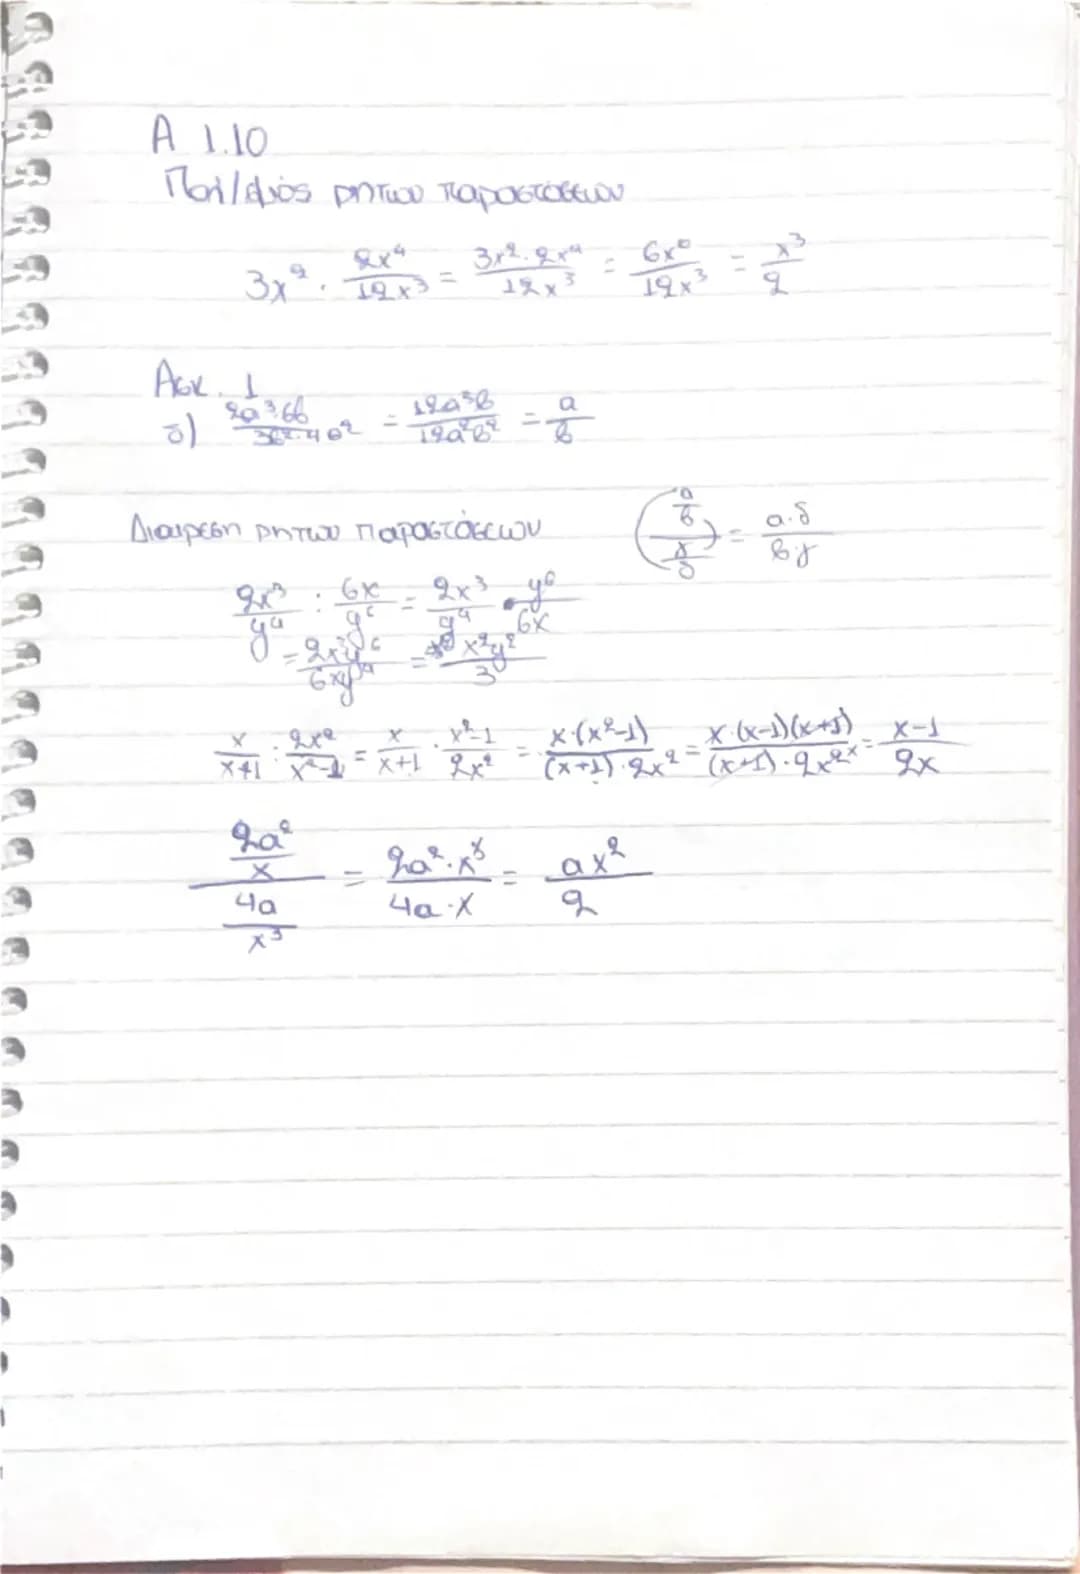 Α 1.10
Πολ/σμός ρητων παραστάσεων
3x² · 2x⁴/12x³ = 3x²·2x⁴/12x³ = 6x⁶/12x³ = x³/2
Ασκ. 1
δ) 2α³·6β/3β²·4α² = 12α³β/12α²β² = α/β
Διαιρεση ρητων παραστάσεων (α/β)/(γ/δ) = α·δ/β·γ
2x³/y⁴ : 6x/y⁶ = 2x³/y⁴ · y⁶/6x
= 2x³y⁶/6xy⁴ = x²y²/3
x/x+1 : 2x²/x²-1 = x/x+1 · x²-1/2x² = x·(x²-1)/(x+1)·2x² = x·(x-1)(x+1)/(x+1)·2x² = x-1/2x
(2α²/x)/(4α/x³) = 2α²·x³/4α·x = αx²/2